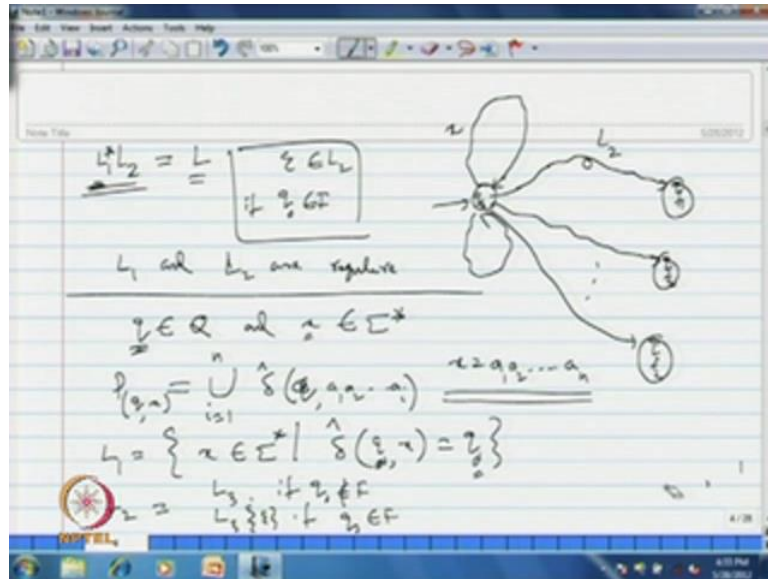 Note1 - Windows Journal
File Edit View Insert Actions Tools Help
Note Title
5/28/2012
L₁*L₂ = L
ε ∈ L₂
if q₀ ∈ F
L₂
L₁ and L₂ are regular
q ∈ Q and x ∈ Σ*
P(q,x) = ⋃ⁿᵢ₌₁ δ̂(q, a₁a₂...aᵢ)
x = a₁a₂ ... aₙ
L₁ = { x ∈ Σ* | δ̂(q₀, x) = q₀ }
L₂ = L₃ if q₀ ∉ F
if q₀ ∈ F
NPTEL
4/28
4:55 PM
5/28/2012